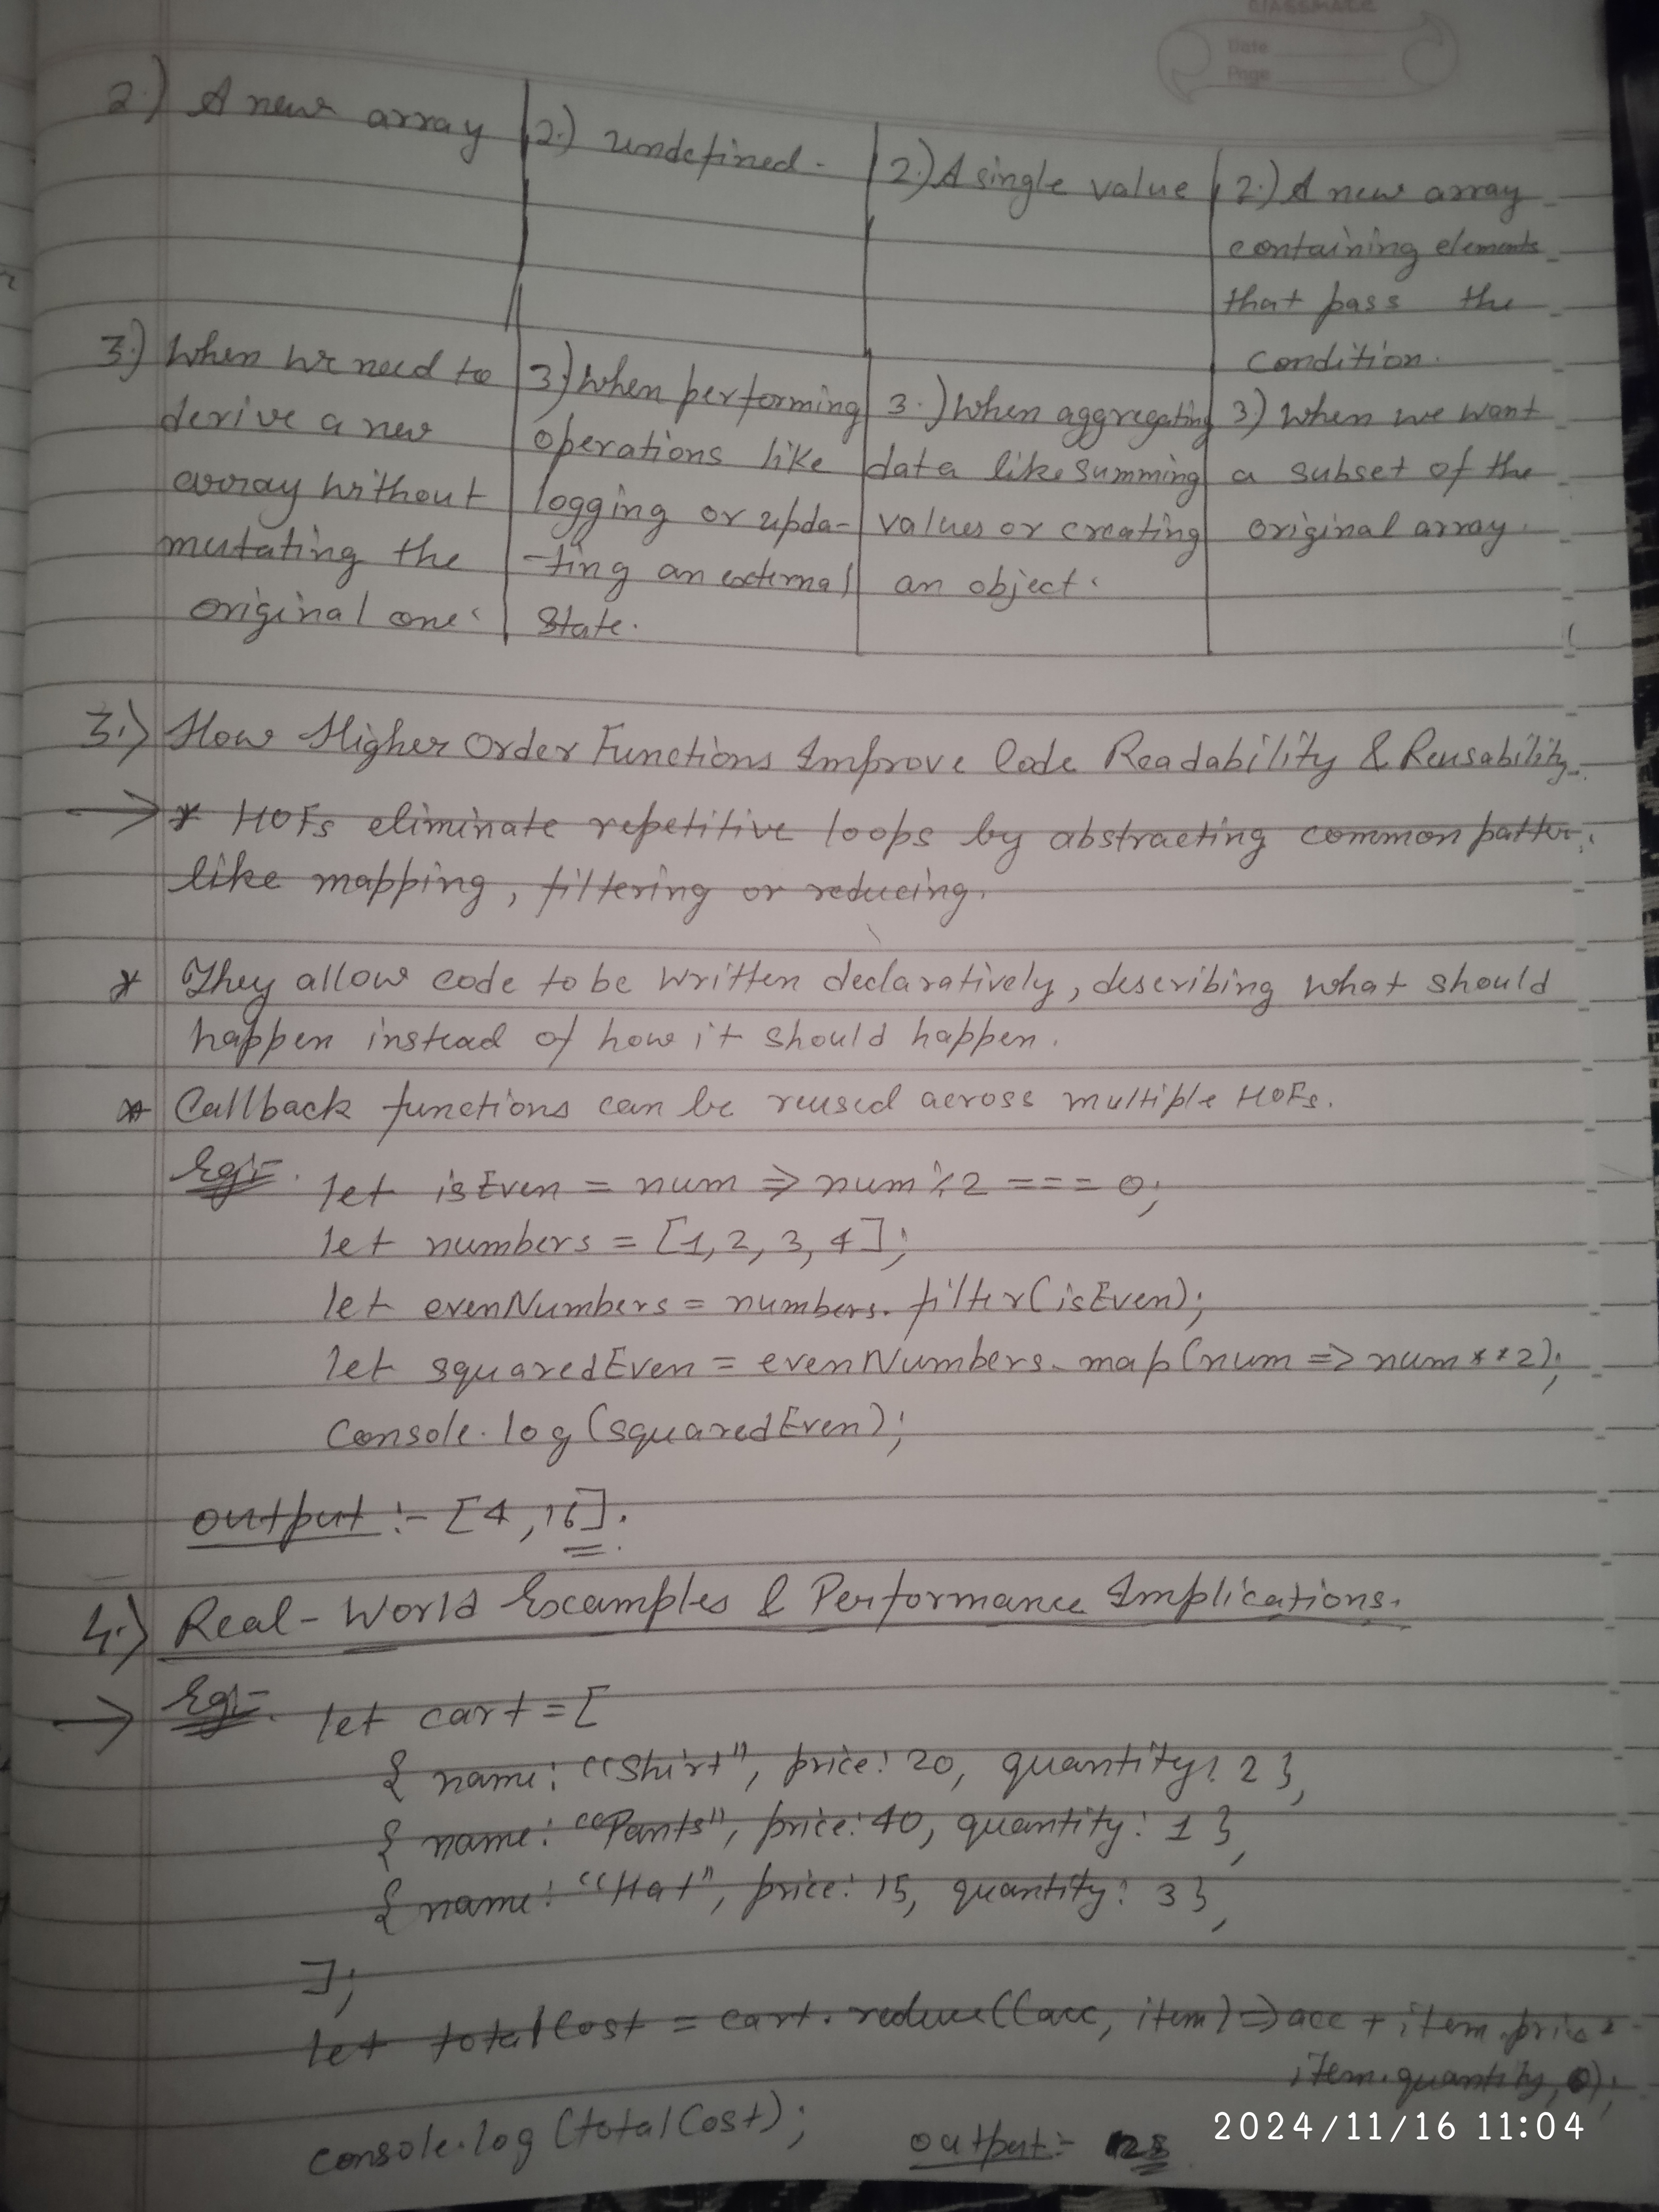 classmate
Date
Page
2.) A new array
2.) undefined.
2.) A single value
2.) A new array
containing elements
that pass the
condition.
3.) When we need to
derive a new
array without
mutating the
original one.
3.) When performing
operations like
logging or upda-
-ting an external
state.
3.) When aggregating
data like summing
values or creating
an object.
3.) When we want
a subset of the
original array.
3.) How Higher Order Functions Improve Code Readability & Reusability.
→ * HOFs eliminate repetitive loops by abstracting common patter
like mapping, filtering or reducing.
* They allow code to be written declaratively, describing what should
happen instead of how it should happen.
* Callback functions can be reused across multiple HOFs.
Eg:- let isEven = num => num % 2 === 0;
let numbers = [1, 2, 3, 4];
let evenNumbers = numbers.filter(isEven);
let squaredEven = evenNumbers.map(num => num ** 2);
console.log(squaredEven);
output :- [4, 16].
4.) Real-World Examples & Performance Implications.
→ Eg:- let cart = [
{ name: "Shirt", price: 20, quantity: 2 },
{ name: "Pants", price: 40, quantity: 1 },
{ name: "Hat", price: 15, quantity: 3 },
];
let totalCost = cart.reduce((acc, item) => acc + item.price *
item.quantity, 0);
console.log(totalCost);
output:-
2024/11/16 11:04